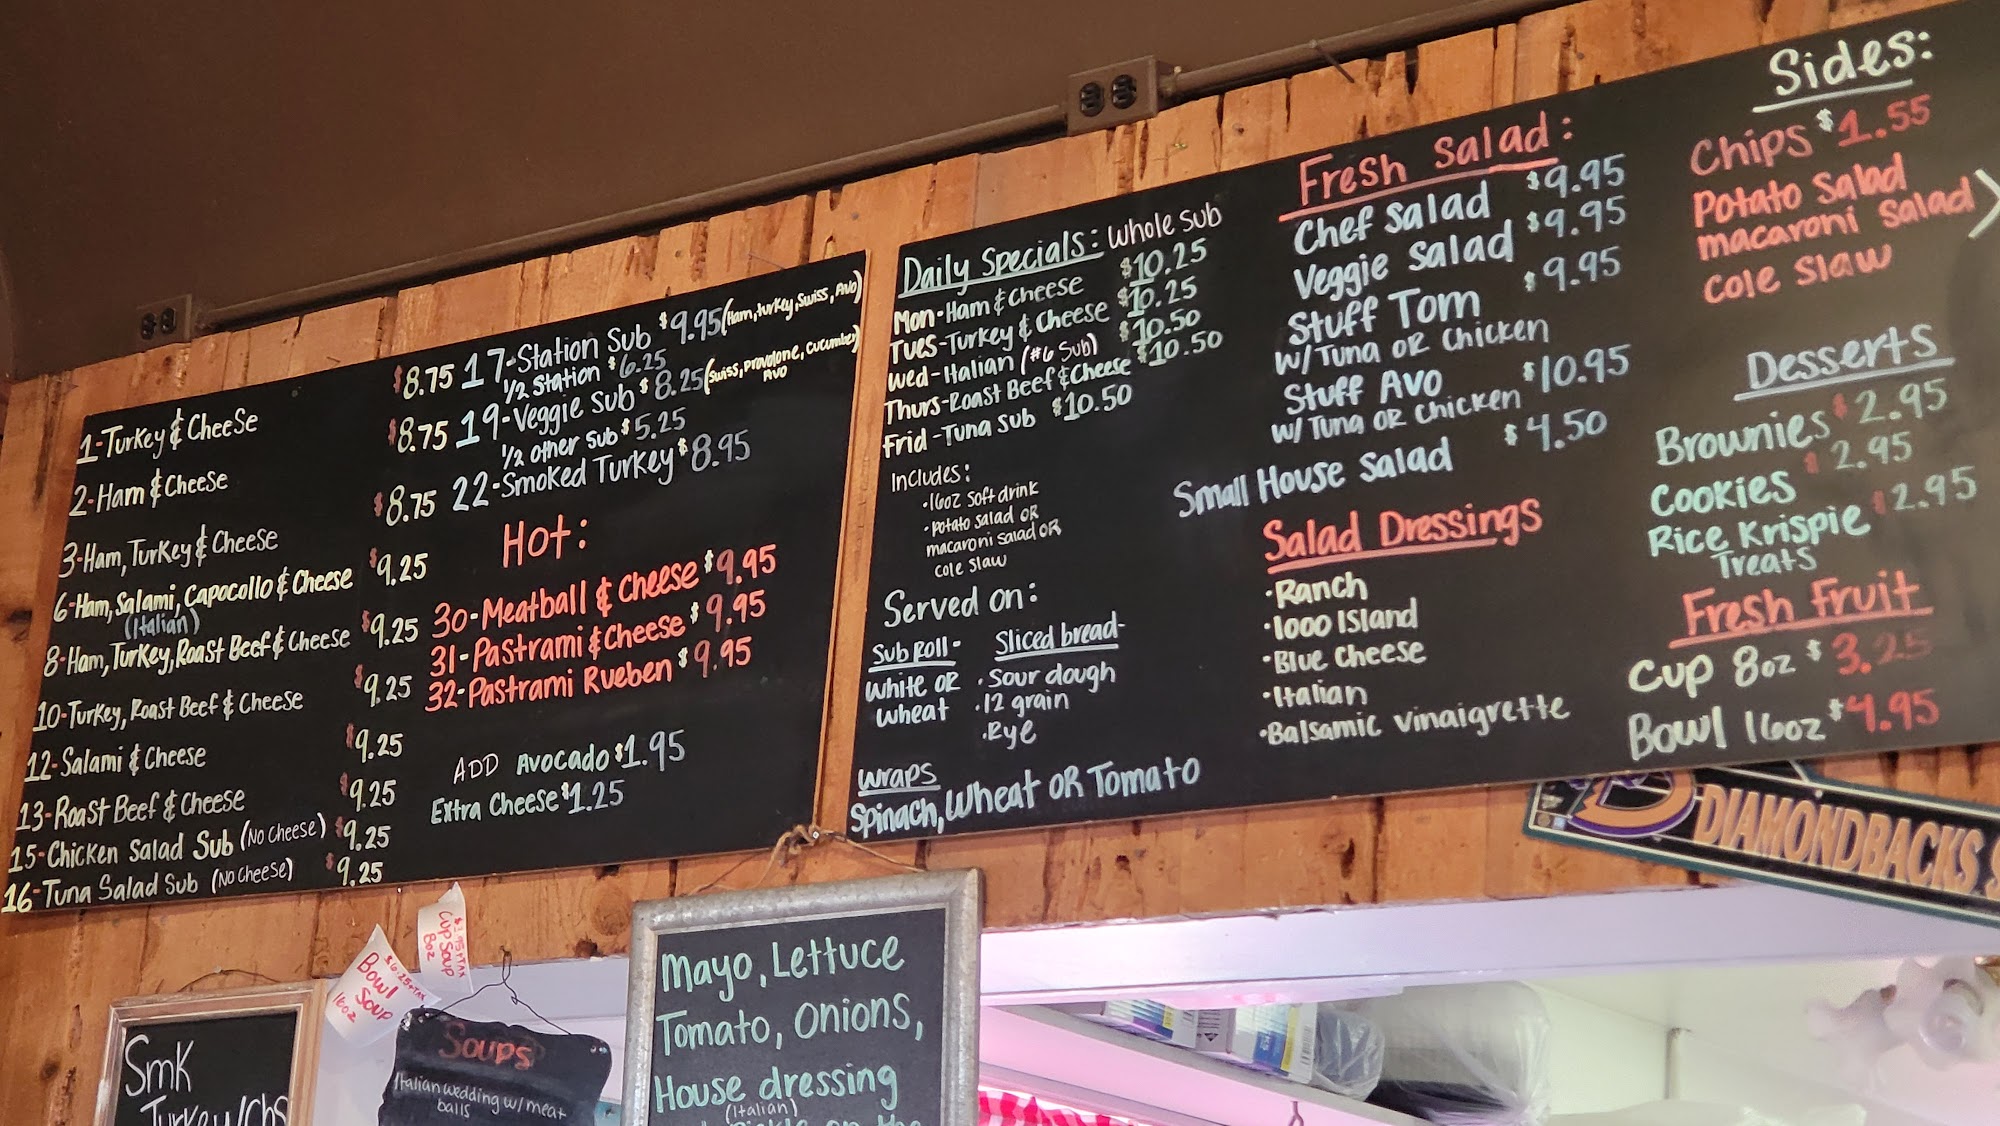 1-Turkey & Cheese $8.75
2-Ham & Cheese $8.75
3-Ham, Turkey & Cheese $8.75
6-Ham, Salami, Capocollo & Cheese $9.25
(Italian)
8-Ham, Turkey, Roast Beef & Cheese $9.25
10-Turkey, Roast Beef & Cheese $9.25
12-Salami & Cheese $9.25
13-Roast Beef & Cheese $9.25
15-Chicken Salad Sub (No Cheese) $9.25
16-Tuna Salad Sub (No Cheese) $9.25
17-Station Sub $9.95 (Ham, Turkey, Swiss, Avo)
1/2 Station $6.25
19-Veggie Sub $8.25 (Swiss, Provolone, Cucumber
Avo
1/2 other sub $5.25
22-Smoked Turkey $8.95
Hot:
30-Meatball & Cheese $9.95
31-Pastrami & Cheese $9.95
32-Pastrami Rueben $9.95
ADD Avocado $1.95
Extra Cheese $1.25
Daily Specials: Whole Sub
Mon-Ham & Cheese $10.25
Tues-Turkey & Cheese $10.25
Wed-Italian (#6 Sub) $10.50
Thurs-Roast Beef & Cheese $10.50
Frid-Tuna Sub $10.50
Includes:
•16oz Soft drink
•Potato Salad OR
macaroni salad OR
cole slaw
Served on:
Sub Roll-
White OR
Wheat
Sliced bread-
•Sour dough
•12 grain
•Rye
Wraps
Spinach, Wheat OR Tomato
Fresh Salad:
Chef Salad $9.95
Veggie Salad $9.95
Stuff Tom $9.95
W/Tuna OR Chicken
Stuff Avo $10.95
W/Tuna OR Chicken
Small House Salad $4.50
Salad Dressings
•Ranch
•1000 Island
•Blue Cheese
•Italian
•Balsamic Vinaigrette
Sides:
Chips $1.55
Potato Salad
macaroni salad
Cole Slaw
Desserts
Brownies $2.95
Cookies $2.95
Rice Krispie $2.95
Treats
Fresh Fruit
Cup 8oz $3.25
Bowl 16oz $4.95
DIAMONDBACKS
Cup Soup
8oz
$6.25+TAX
Bowl
Soup
16oz
Smk
Turkey/Chs
Soups
Italian wedding w/ meat
balls
Mayo, Lettuce
Tomato, Onions,
House dressing
(Italian)
Pickle on the